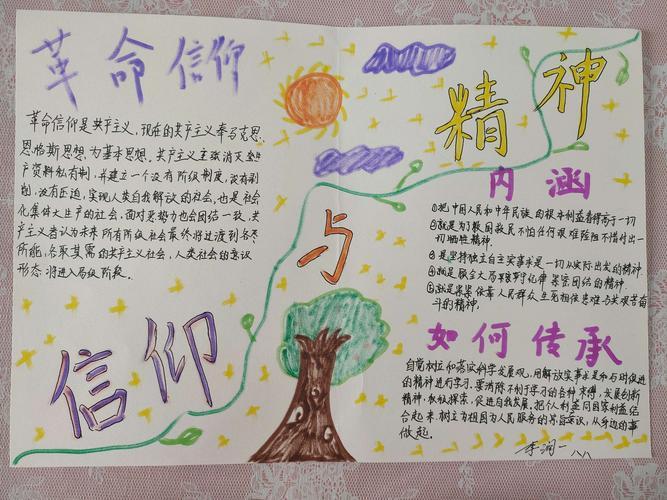 革命信仰
革命信仰是共产主义，现在的共产主义奉马克思
恩格斯思想，为基本思想。共产主义主张消灭生
产资料私有制，并建立一个没有阶级制度，没有剥
削，没有压迫，实现人类自我解放的社会，也是社会
化集体大生产的社会，面对恶势力也会团结一致，共
产主义者认为未来所有阶级社会最终将过渡到各尽
所能，各取其需的共产主义社会，人类社会的意识
形态将进入高级阶段。
信仰
与
精神
内涵
①把中国人民和中华民族的根本利益看得高于一切
②就是为救国救民不怕任何艰难险阻不惜付出一
切牺牲精神
③是坚持独立自主实事求是一切从实际出发的精神
④就是顾全大局严守纪律紧密团结的精神
⑤就是紧紧依靠人民群众生死相依患难与共艰苦奋
斗的精神，
如何传承
自觉树立和落实科学发展观，用解放实事求是和与时俱进
的精神进行学习，要消除不利于学习的各种束缚，发展创新
精神，积极探索，促进自我发展，把个人利益同国家利益结
合起来，树立为祖国为人民服务的思想意识，从身边的事
做起。
李润一